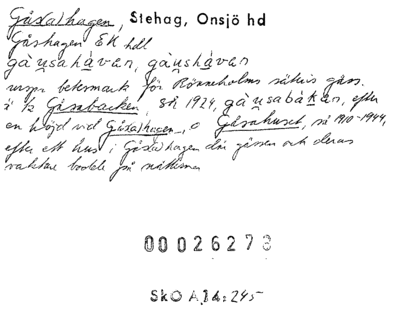 Gås(a)hagen, Stehag, Onsjö hd
Gåshagen EK hdl
gàu̲sahàvan, gàu̲shàvan
urspr betesmark för Rönneholms säteris gäss.
i ½ Gåsabacken, så 1924, gàu̲sabàkan, efter
en höjd vid Gås(a)hagen, o Gåsahuset, så 1910-1944,
efter ett hus i Gås(a)hagen där gässen och deras
vaktare bodde på nätterna
00026273
SkO A14: 245